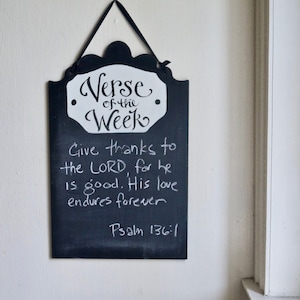 Verse
of the
Week
Give thanks to
the LORD, for he
is good. His love
endures forever
Psalm 136:1